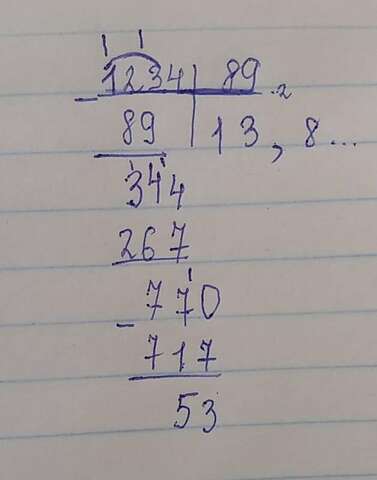 1234 89
89 13,8...
344
267
770
717
53